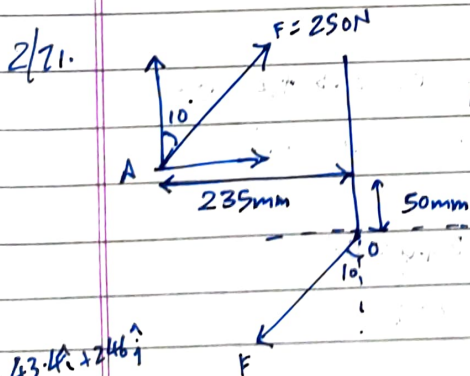 2/71.
F=250N
10°
A
235mm
50mm
O
10°
F
43.4î+246ĵ